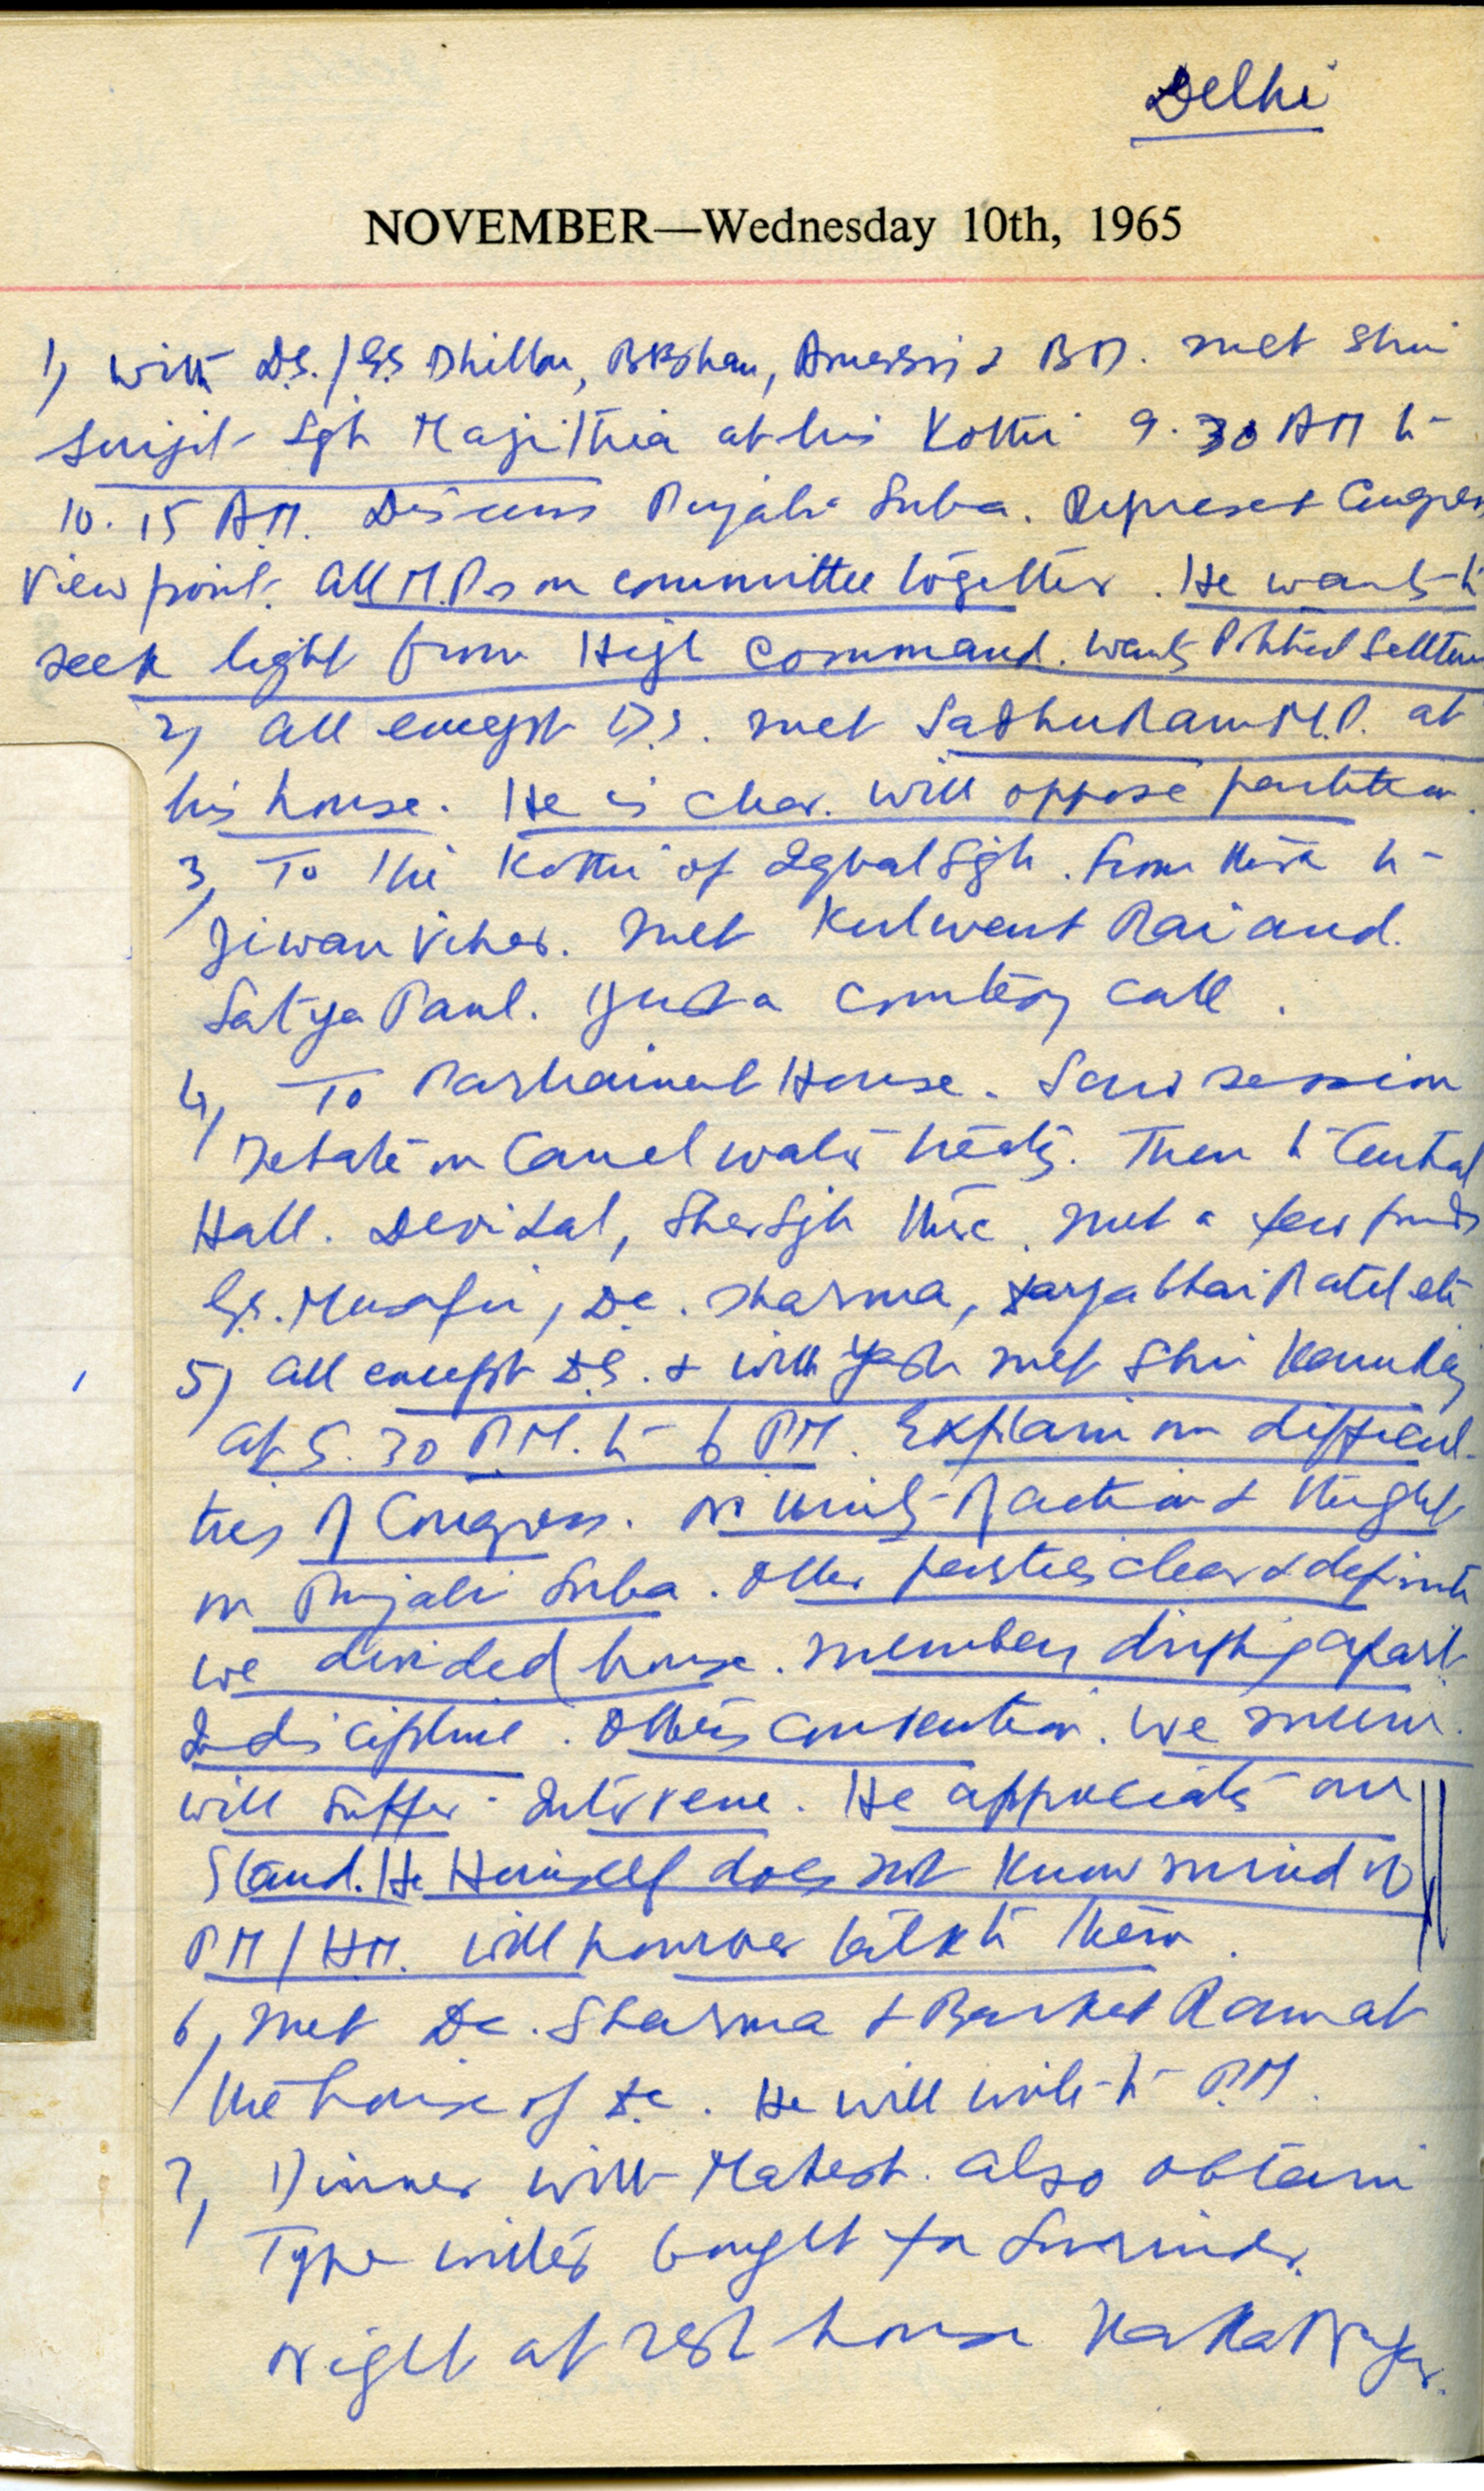 Delhi
NOVEMBER—Wednesday 10th, 1965
1) With D.S. / G.S Dhillon, , & B.D. met Shri
Surjit Sgh Majithia at his Kothi 9.30 AM to
10.15 A.M. Discuss Punjabi Suba. Represent Congress
View point. All M.Ps on committee together. He wants to
seek light from High Command. Wants Political Settlem
2) All except D.S. met Sadhu Ram M.P. at
his house. He is clear. Will oppose partition.
3) To the Kothi of Iqbal Sgh. From there to
Jiwan Vihar. Met Kulwant Rai and
Satya Paul. Just a courtesy call.
4) To Parliament House. Saw session
Debate on Canal water treaty. Then to Central
Hall. Devi Lal, Sher Sgh there. Met a few friends
G.S. Musafir, D.C. Sharma, Dayabhai Patel etc
5) All except D.S. & with Yash met Shri Kamraj
at 5.30 P.M. to 6 PM. Explain our difficul-
ties of Congress. No unity of action & thought
on Punjabi Suba. Other parties clear & definite
We divided house. Members drifting apart
Indiscipline. Others convention. We mum.
will suffer. Intervene. He appreciates our
Stand. He Himself does not know mind of
PM / HM. Will however talk to them.
6) Met D.C. Sharma & Barkat Ram at
the house of D.C. He will write to P.M.
7) Dinner with Mahesh. Also obtain
Type writer bought for Surinder.
Night at rest house Kaka Nagar.